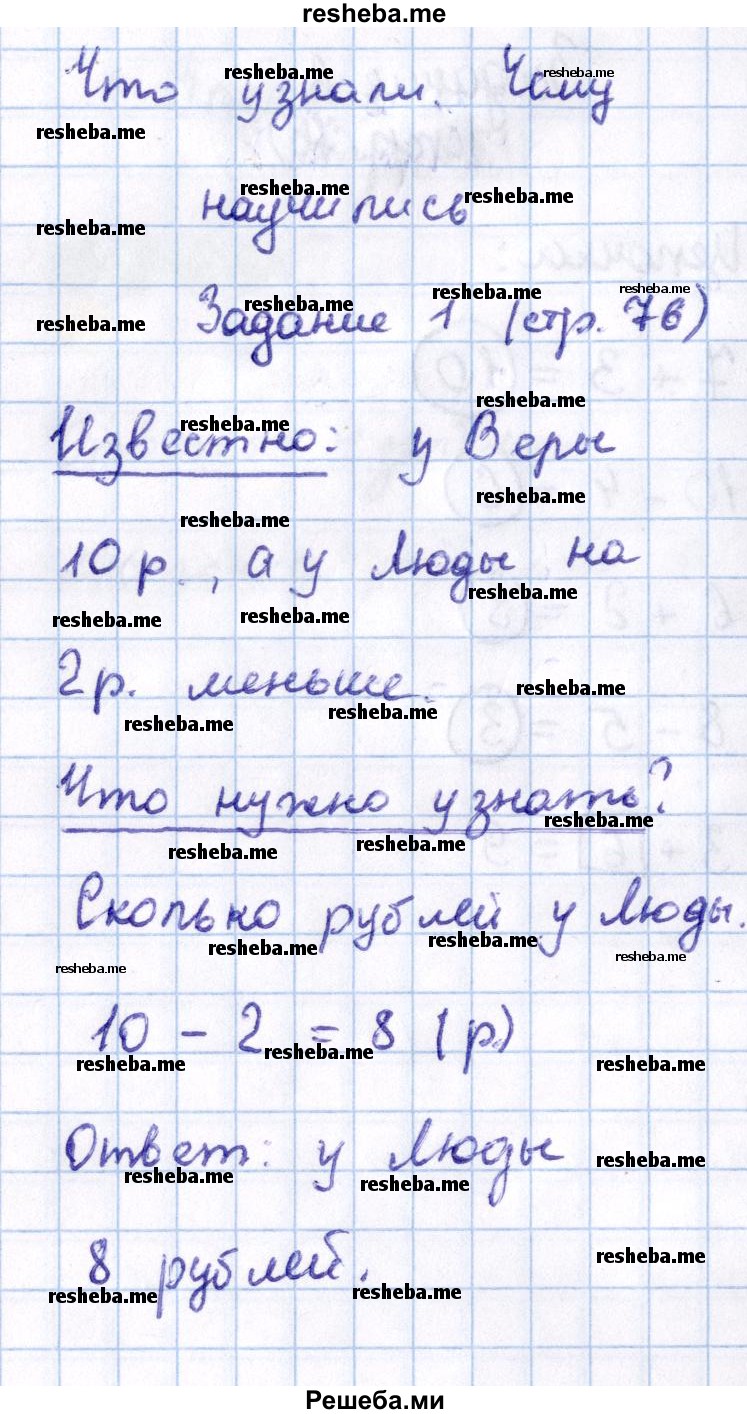 resheba.me
Что узнали. Чему
научились
Задание 1 (стр. 76)
Известно: у Веры
10 р., а у Люды на
2 р. меньше.
Что нужно узнать?
Сколько рублей у Люды.
10 - 2 = 8 (р.)
Ответ: у Люды
8 рублей.
Решеба.ми